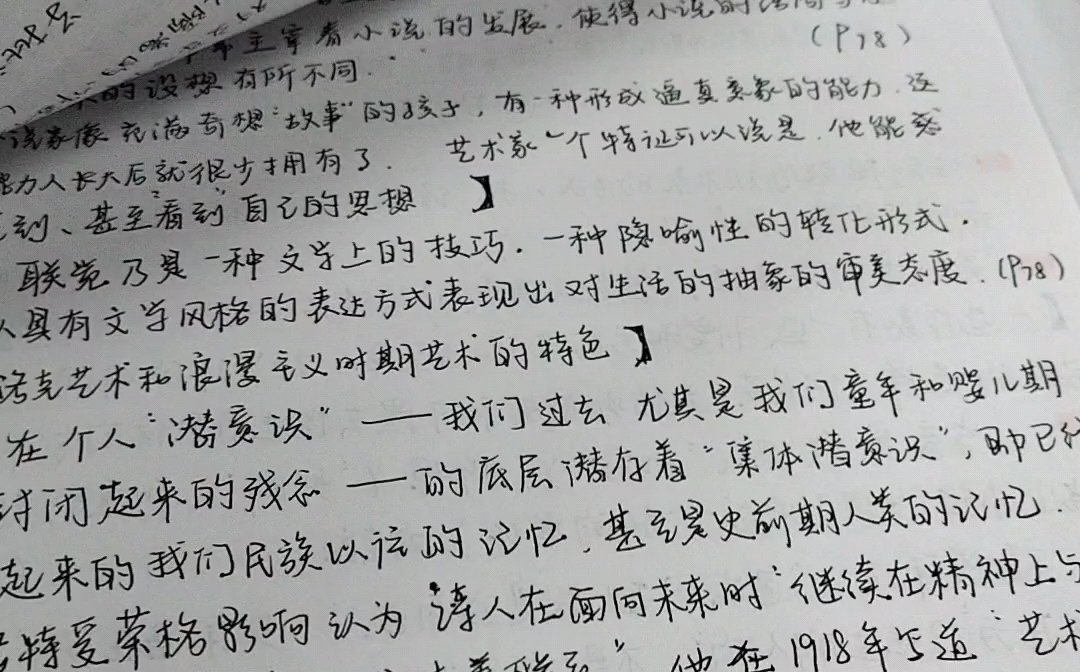 主宰着小说的发展.使得小说的结局与
的设想有所不同.
(P78)
说家像充满奇想"故事"的孩子,有一种形成逼真意象的能力.这
能力人长大后就很少拥有了.
艺术家一个特征可以说是.他能感
到、甚至"看到"自己的思想】
联觉乃是一种文学上的技巧.一种隐喻性的转化形式.
具有文学风格的表达方式表现出对生活的抽象的审美态度.(P78)
洛克艺术和浪漫主义时期艺术的特色】
在个人"潜意识"——我们过去尤其是我们童年和婴儿期
封闭起来的残念——的底层潜存着"集体潜意识",即已
起来的我们民族以往的记忆.甚至是史前期人类的记忆.
特受荣格影响认为"诗人在面向未来时"继续在精神上与
他在1918年写道"艺术